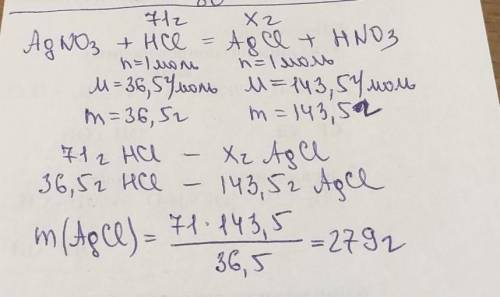 71г xг
AgNO3 + HCl = AgCl + HNO3
n=1моль n=1моль
M=36,5г/моль M=143,5г/моль
m=36,5г m=143,5г
71г HCl — xг AgCl
36,5г HCl — 143,5г AgCl
m(AgCl) = 71·143,5 / 36,5 = 279г